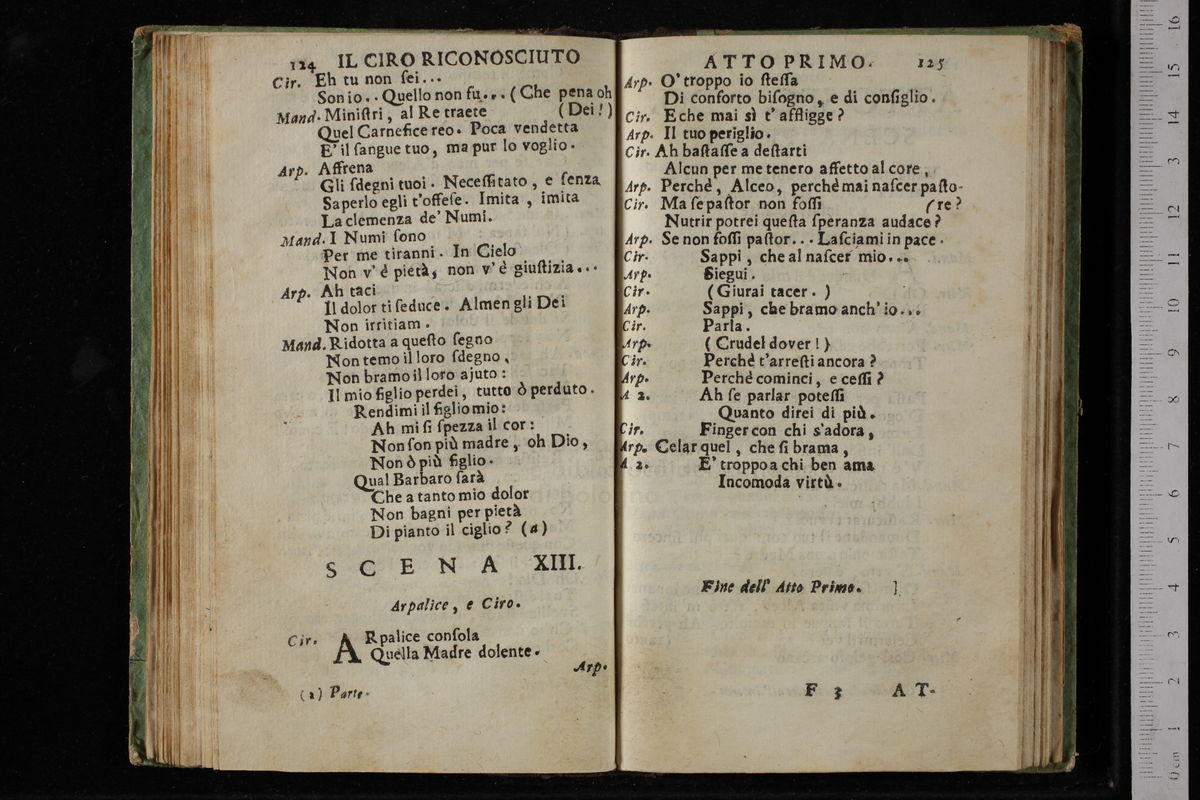 124 IL CIRO RICONOSCIUTO
Cir. Eh tu non ſei...
Son io.. Quello non fu... (Che pena oh
Mand. Miniſtri, al Re traete (Dei!)
Quel Carnefice reo. Poca vendetta
E' il ſangue tuo, ma pur lo voglio.
Arp. Affrena
Gli ſdegni tuoi. Neceſſitato, e ſenza
Saperlo egli t'offeſe. Imita, imita
La clemenza de' Numi.
Mand. I Numi ſono
Per me tiranni. In Cielo
Non v' è pietà, non v' è giuſtizia...
Arp. Ah taci
Il dolor ti ſeduce. Almen gli Dei
Non irritiam.
Mand. Ridotta a queſto ſegno
Non temo il loro ſdegno,
Non bramo il loro ajuto:
Il mio figlio perdei, tutto ò perduto.
Rendimi il figlio mio:
Ah mi ſi ſpezza il cor:
Non ſon più madre, oh Dio,
Non ò più figlio.
Qual Barbaro ſarà
Che a tanto mio dolor
Non bagni per pietà
Di pianto il ciglio? (a)
SCENA XIII.
Arpalice, e Ciro.
Cir. ARpalice conſola
Quella Madre dolente.
Arp.
(a) Parte.
ATTO PRIMO. 125
Arp. O' troppo io ſteſſa
Di conforto biſogno, e di conſiglio.
Cir. E che mai sì t' affligge?
Arp. Il tuo periglio.
Cir. Ah baſtaſſe a deſtarti
Alcun per me tenero affetto al core,
Arp. Perchè, Alceo, perchè mai naſcer paſto-
Cir. Ma ſe paſtor non foſſi (re?
Nutrir potrei queſta ſperanza audace?
Arp. Se non foſſi paſtor... Laſciami in pace.
Cir. Sappi, che al naſcer mio...
Arp. Siegui.
Cir. (Giurai tacer.)
Arp. Sappi, che bramo anch' io...
Cir. Parla.
Arp. (Crudel dover!)
Cir. Perchè t'arreſti ancora?
Arp. Perchè cominci, e ceſſi?
A 2. Ah ſe parlar poteſſi
Quanto direi di più.
Cir. Finger con chi s'adora,
Arp. Celar quel, che ſi brama,
A 2. E' troppo a chi ben ama
Incomoda virtù.
Fine dell' Atto Primo. ]
F 3 AT-
0 cm 1 2 3 4 5 6 7 8 9 10 11 12 3 14 15 16